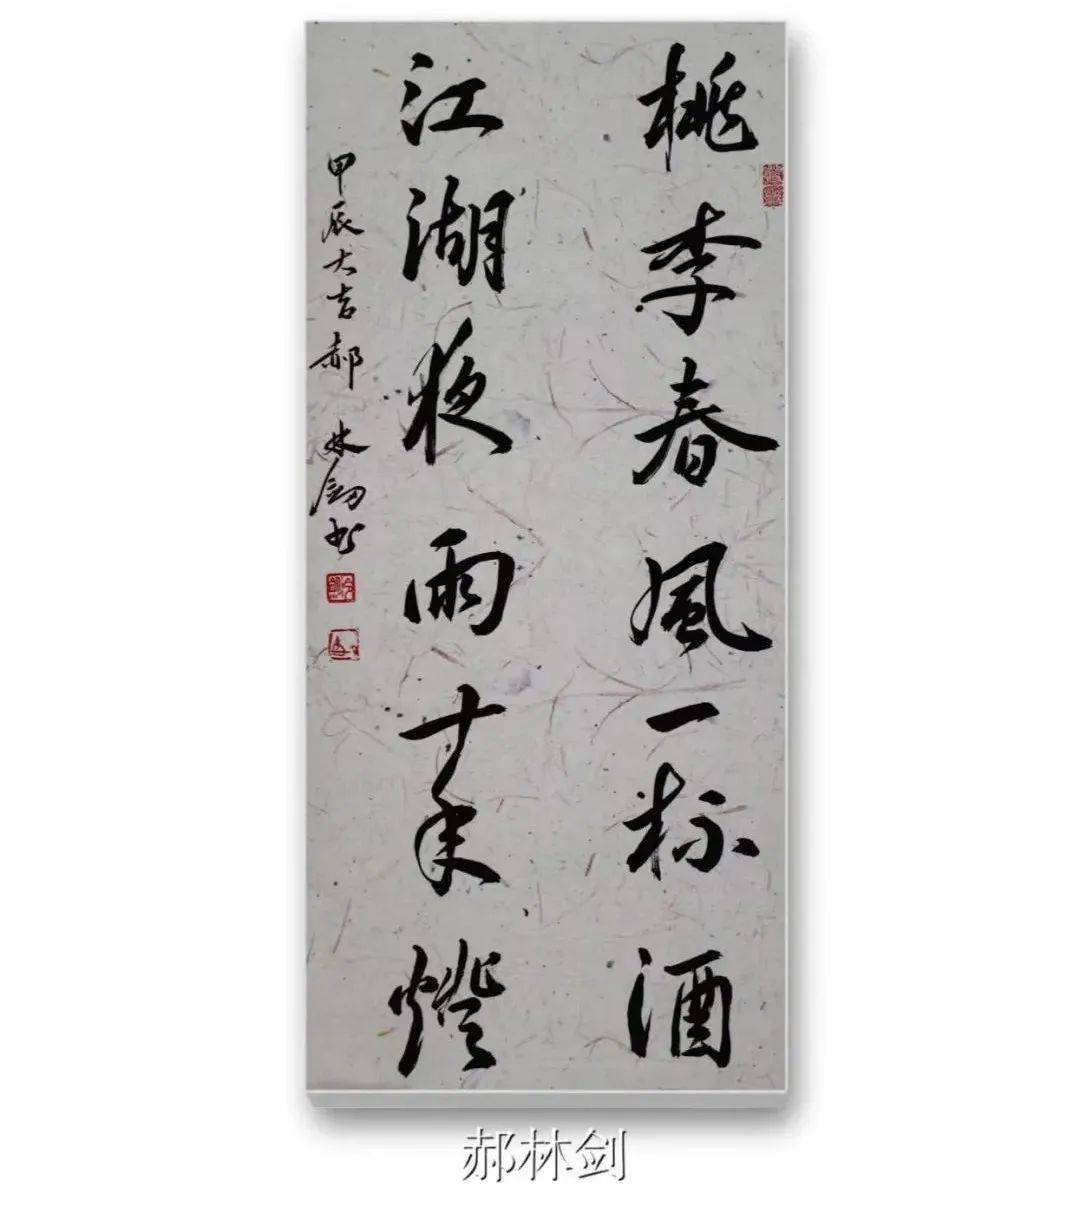 桃李春風一杯酒
江湖夜雨十年燈
甲辰大吉郝林釼书
郝林剑